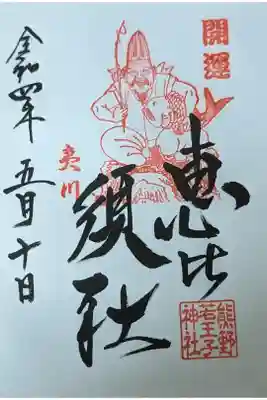 開運
恵比
須社
夷川
令和四年
五月十日
熊野
若王子
神社